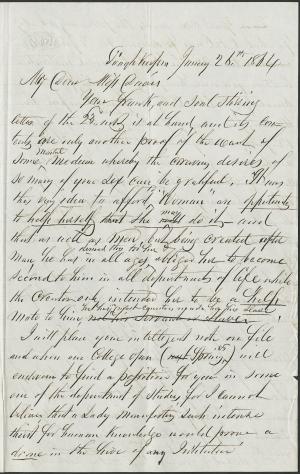 Poughkeepsie January 26th 1864
My Dear Miss
Your frank, and Soul Stirring
letter of the 23d inst is at hand and its con-
tents are only another proof of the want of
Some Mental Medium whereby the craving desires of
So many of your Sex can be gratified. It was
this very idea (to afford) "Woman" an oppertunity
to help herself that She may do it - and
that as well as Man, but being created after
Man, he has in all ages obliged her to become
Second to him in all departments of life while
the Creator only intended her to be a help
Mate to him not his Servant or Slave
I will place your intelligent note on file
and when our College opens (next Spring) will
endeavor to find a position for you in some
one of the department of Studies for I cannot
believe that a Lady Manifesting Such intense
thirst for human Knowledge would prove a
drone in the hive of any Institution